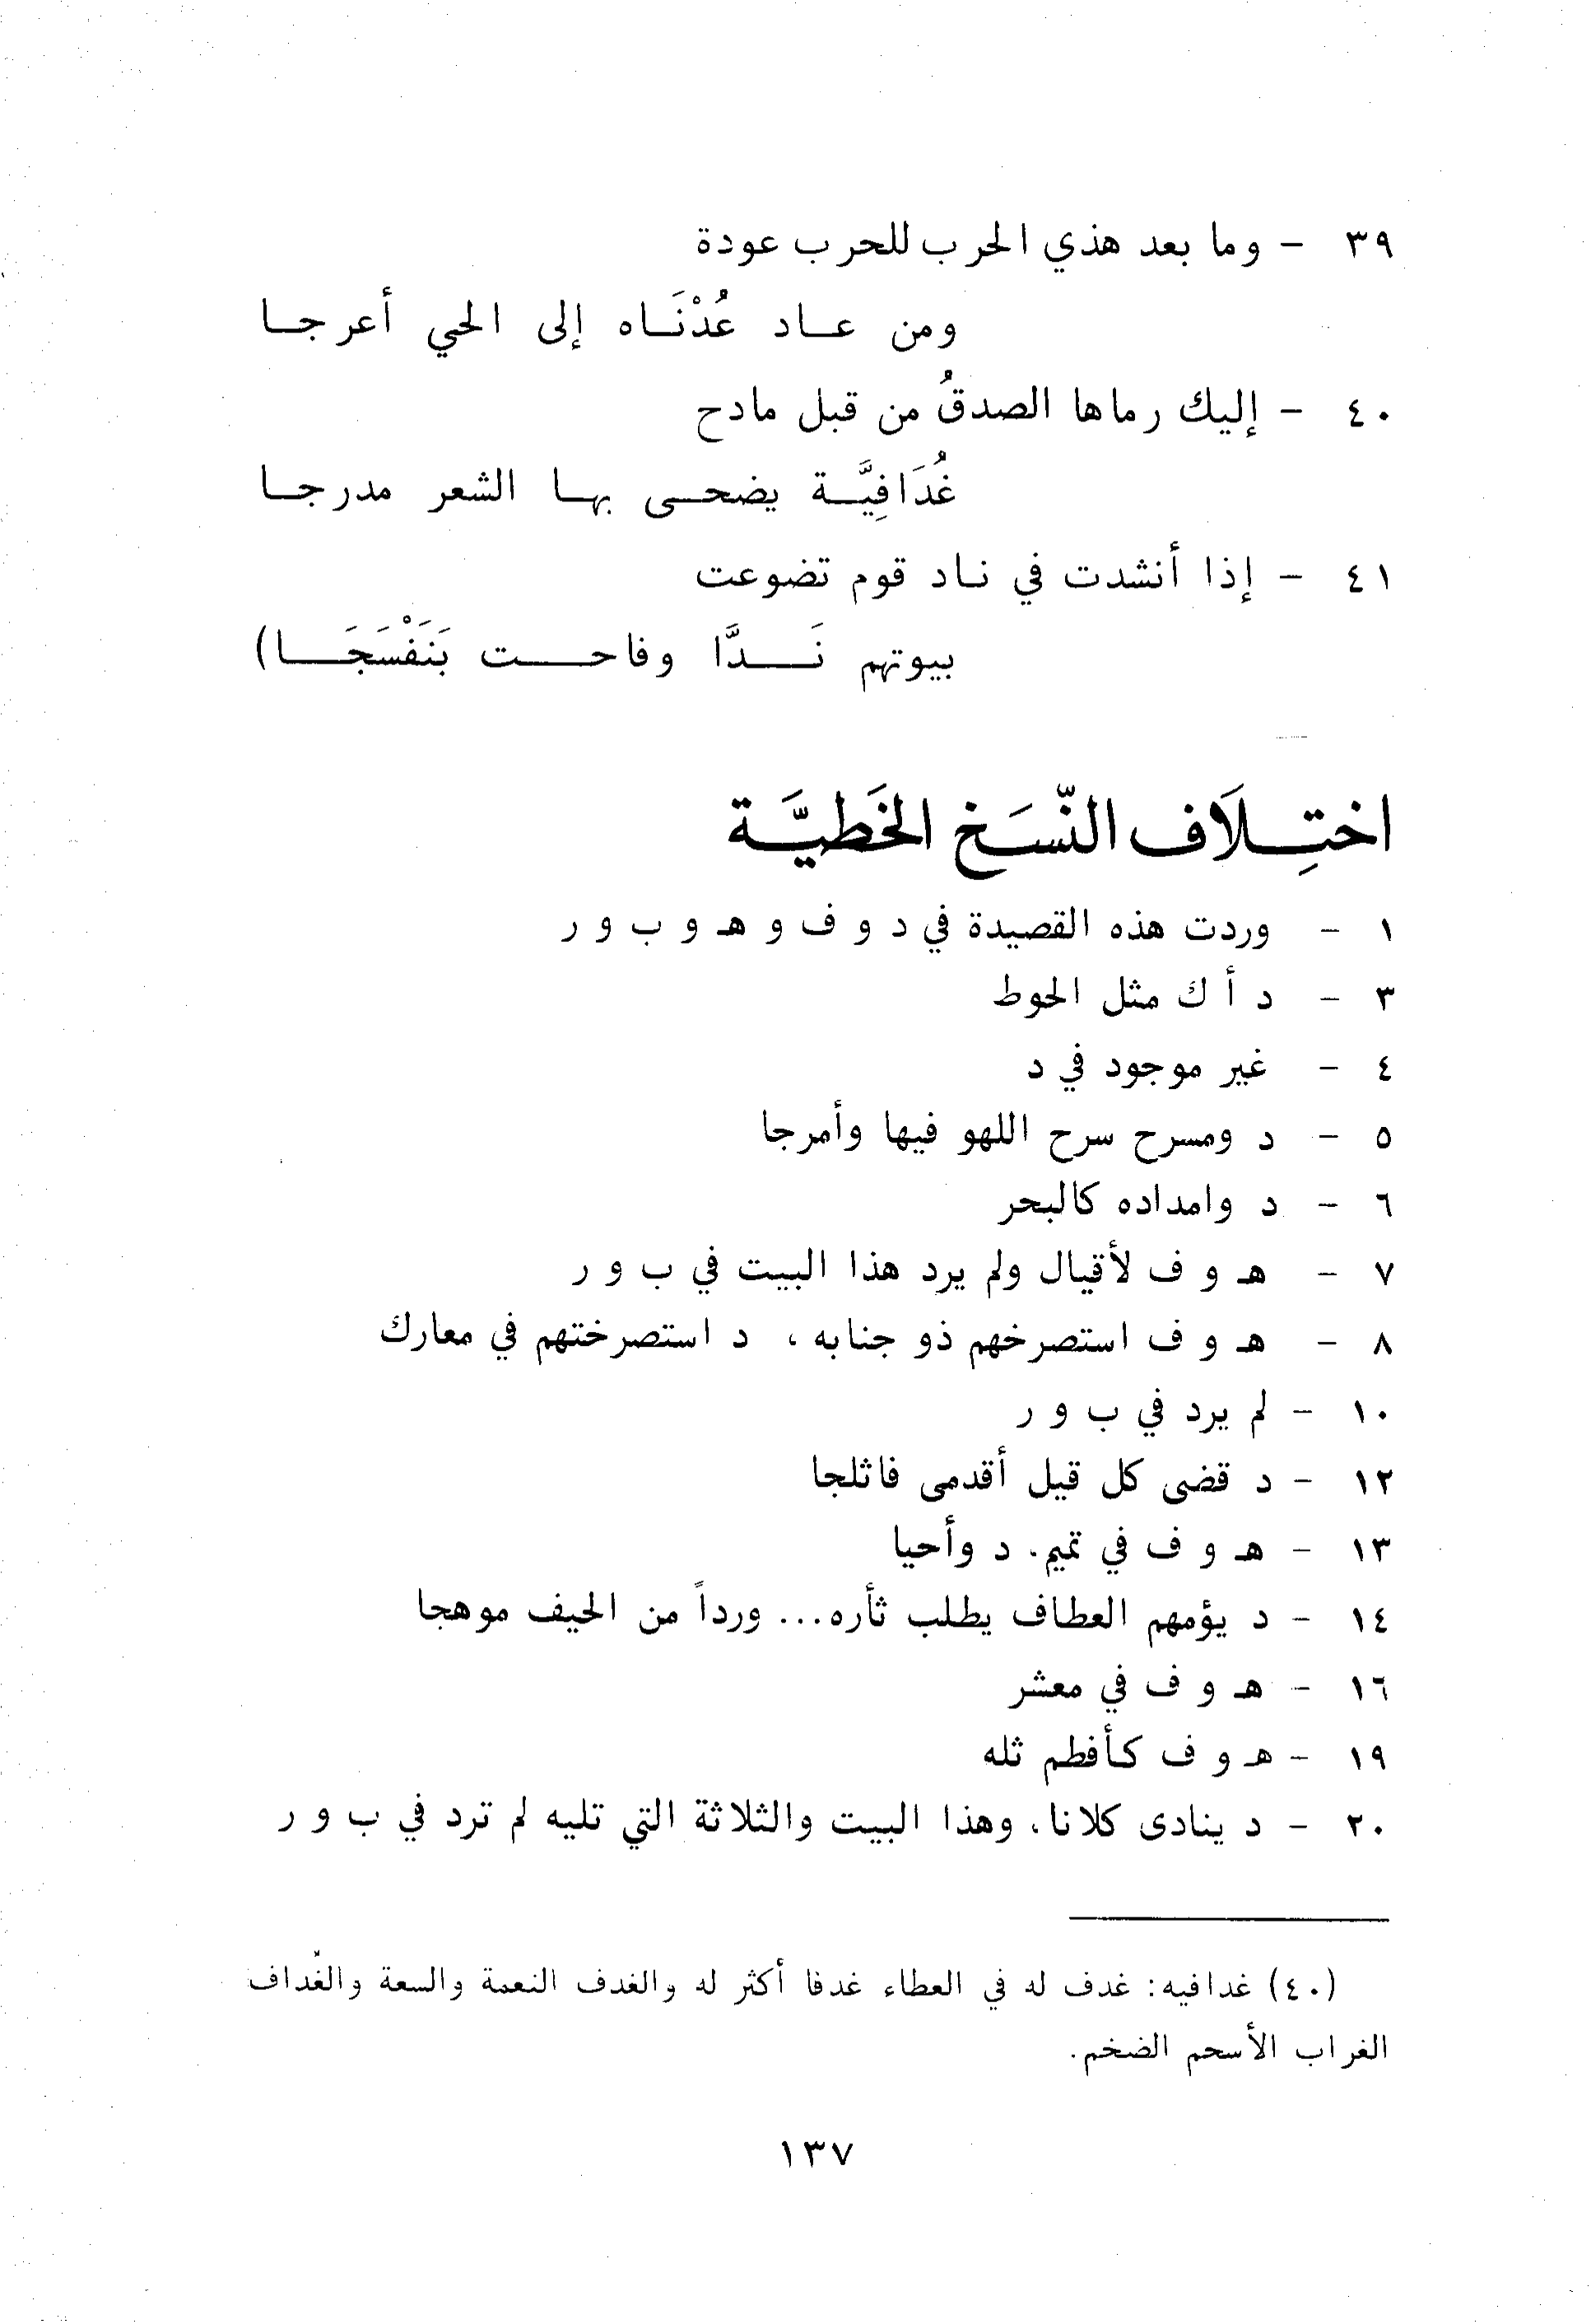 ٣٩ - وما بعد هذي الحرب للحرب عودة
ومن عاد عُدْنَاه إلى الحي أعرجا
٤٠ - إليك رماها الصدقُ من قبل مادح
غُدَافِيَّة يضحى بها الشعر مدرجا
٤١ - إذا أنشدت في ناد قوم تضوعت
بيوتهم نَدًّا وفاحت بَنَفْسَجَا)
اختِلَاف النّسَخ الخَطيَّة
١ - وردت هذه القصيدة في د و ف و هـ و ب و ر
٣ - د أ ك مثل الحوط
٤ - غير موجود في د
٥ - د ومسرح سرح اللهو فيها وأمرجا
٦ - د وامداده كالبحر
٧ - هـ و ف لأقيال ولم يرد هذا البيت في ب و ر
٨ - هـ و ف استصرخهم ذو جنابه ، د استصرختهم في معارك
١٠ - لم يرد في ب و ر
١٢ - د قضى كل قيل أقدمى فاثلجا
١٣ - هـ و ف في تميم. د وأحيا
١٤ - د يؤمهم العطاف يطلب ثأره... ورداً من الحيف موهجا
١٦ - هـ و ف في معشر
١٩ - هـ و ف كأفطم ثله
٢٠ - د ينادى كلانا. وهذا البيت والثلاثة التي تليه لم ترد في ب و ر
(٤٠) غدافيه: غدف له في العطاء غدفا أكثر له والغدف النعمة والسعة والغُداف
الغراب الأسحم الضخم.
١٣٧